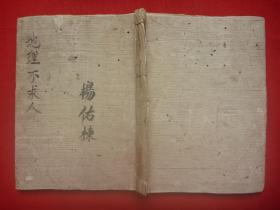 地理不求人
楊佑棟